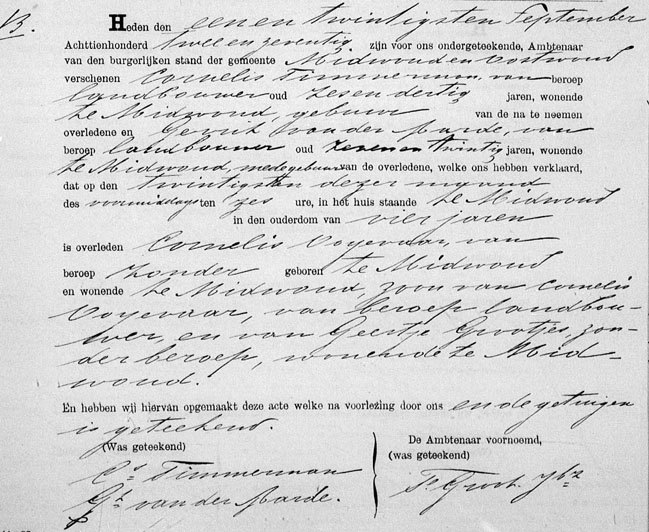 13.
Heden den eenen twintigsten September
Achttienhonderd twee en zeventig zijn voor ons ondergeteekende, Ambtenaar
van den burgerlijken stand der gemeente Midwoud en Oostwoud
verschenen Cornelis Timmerman, van beroep
landbouwer oud zes en dertig jaren, wonende
te Midwoud, gebuur van de na te noemen
overledene en Gerrit van der Aarde, van
beroep landbouwer oud zeven en twintig jaren, wonende
te Midwoud, medegebuur van de overledene, welke ons hebben verklaard,
dat op den twintigsten dezer maand
des voormiddags ten zes ure, in het huis staande te Midwoud
in den ouderdom van vier jaren
is overleden Cornelis Ooyevaar, van
beroep zonder geboren te Midwoud
en wonende te Midwoud, zoon van Cornelis
Ooyevaar, van beroep landbou-
wer, en van Geertje Grootjes, zon-
der beroep, wonende te Mid-
woud.
En hebben wij hiervan opgemaakt deze acte welke na voorlezing door ons en de getuigen
is geteekend.
(Was geteekend) De Ambtenaar voornoemd,
(was geteekend)
Cs Timmerman
Gt van der Aarde. Groot Jbz